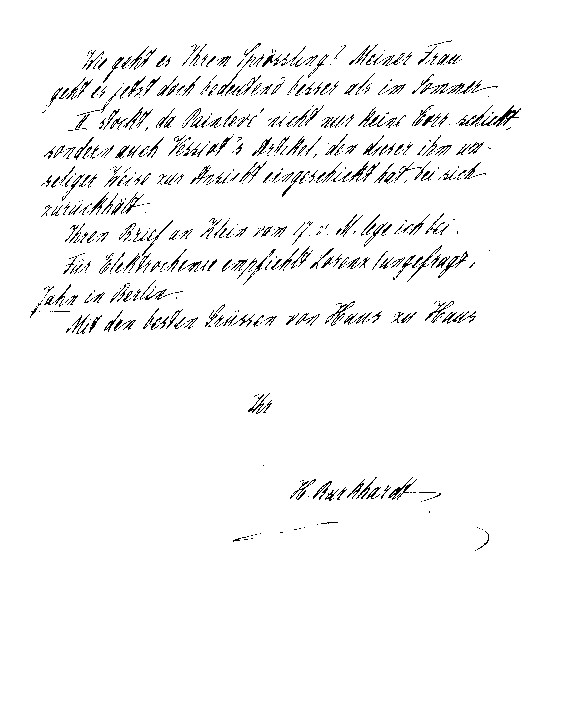 Wie geht es Ihrem Sprössling? Meiner Frau
geht es jetzt doch bedeutend besser als im Sommer
II stockt, da Painlevé nicht nur keine Corr. schickt,
sondern auch Vessiot's Artikel, den dieser ihm un-
seliger Weise zur Ansicht eingeschickt hat, bei sich
zurückhält.
Ihren Brief an Klein vom 17. v. M. lege ich bei.
Für Elektrochemie empfiehlt Lorenz (ungefragt)
Jahn in Berlin.
Mit den besten Grüssen von Haus zu Haus
Ihr
H. Burkhardt